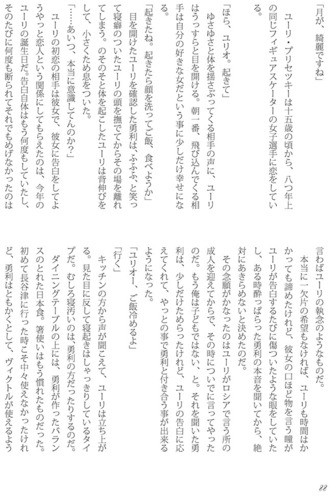 「月が、綺麗ですね」
　ユーリ・プリセツキーは十五歳の頃から、八つ年上
の同じフィギュアスケーターの女子選手に恋をしてい
る。
「ほら、ユリオ。起きて」
　ゆさゆさと体を揺さぶってくる相手の声に、ユーリ
はうっすらと目を開ける。朝一番、飛び込んでくる相
手は自分の好きな人だという事に少しだけ幸せにな
る。
「起きたね。起きたら顔を洗ってご飯、食べようか」
　目を開けたユーリを確認した勇利は、ふふふ、と笑っ
て寝癖のついたユーリの頭を撫でてからその場を離れ
てしまう。のそのそと体を起こしたユーリは背伸びを
して、小さくため息をついた。
「……あいつ、本当に意識してんのか？」
　ユーリの初恋の相手は彼女で、彼女に告白をしてよ
うやっと恋人という関係にしてもらえたのは、今年の
ユーリの誕生日だ。告白自体はもう何度もしていたし、
そのたびに何度も断られてそれでもめげなかったのは
言わばユーリの執念のようなものだ。
　本当に一欠片の希望もなければ、ユーリも時間はか
かっても諦めたけれど、彼女の口ほど物を言う瞳が
ユーリが告白するたびに傷ついたような眼をしていた
し、ある時酔っぱらった勇利の本音を聞いてから、絶
対にあきらめないと決めたのだ。
　その念願がかなったのはユーリがロシアで言う所の
成人を迎えてからで、その時についでに言ってやった
のだ。もう俺は子どもではない、と。それを聞いた勇
利は、少しだけためらったけれど、ユーリの告白に応
えてくれて、やっとの事で勇利と付き合う事が出来る
ようになった。
「ユリオー、ご飯冷めるよ」
「行く」
　キッチンの方から声が聞こえて、ユーリは立ち上が
る。見た目に反して寝起きはしゃっきりしているタイ
プだ。むしろ寝汚いのは勇利の方だったりするのだ。
　ダイニングテーブルの上には、勇利が作ったバラン
スのとれた日本食。箸使いはもう慣れたものだった。
初めて長谷津に行った時こそ中々使えなかったけれ
ど、勇利はともかくとして、ヴィクトルが使えるよう